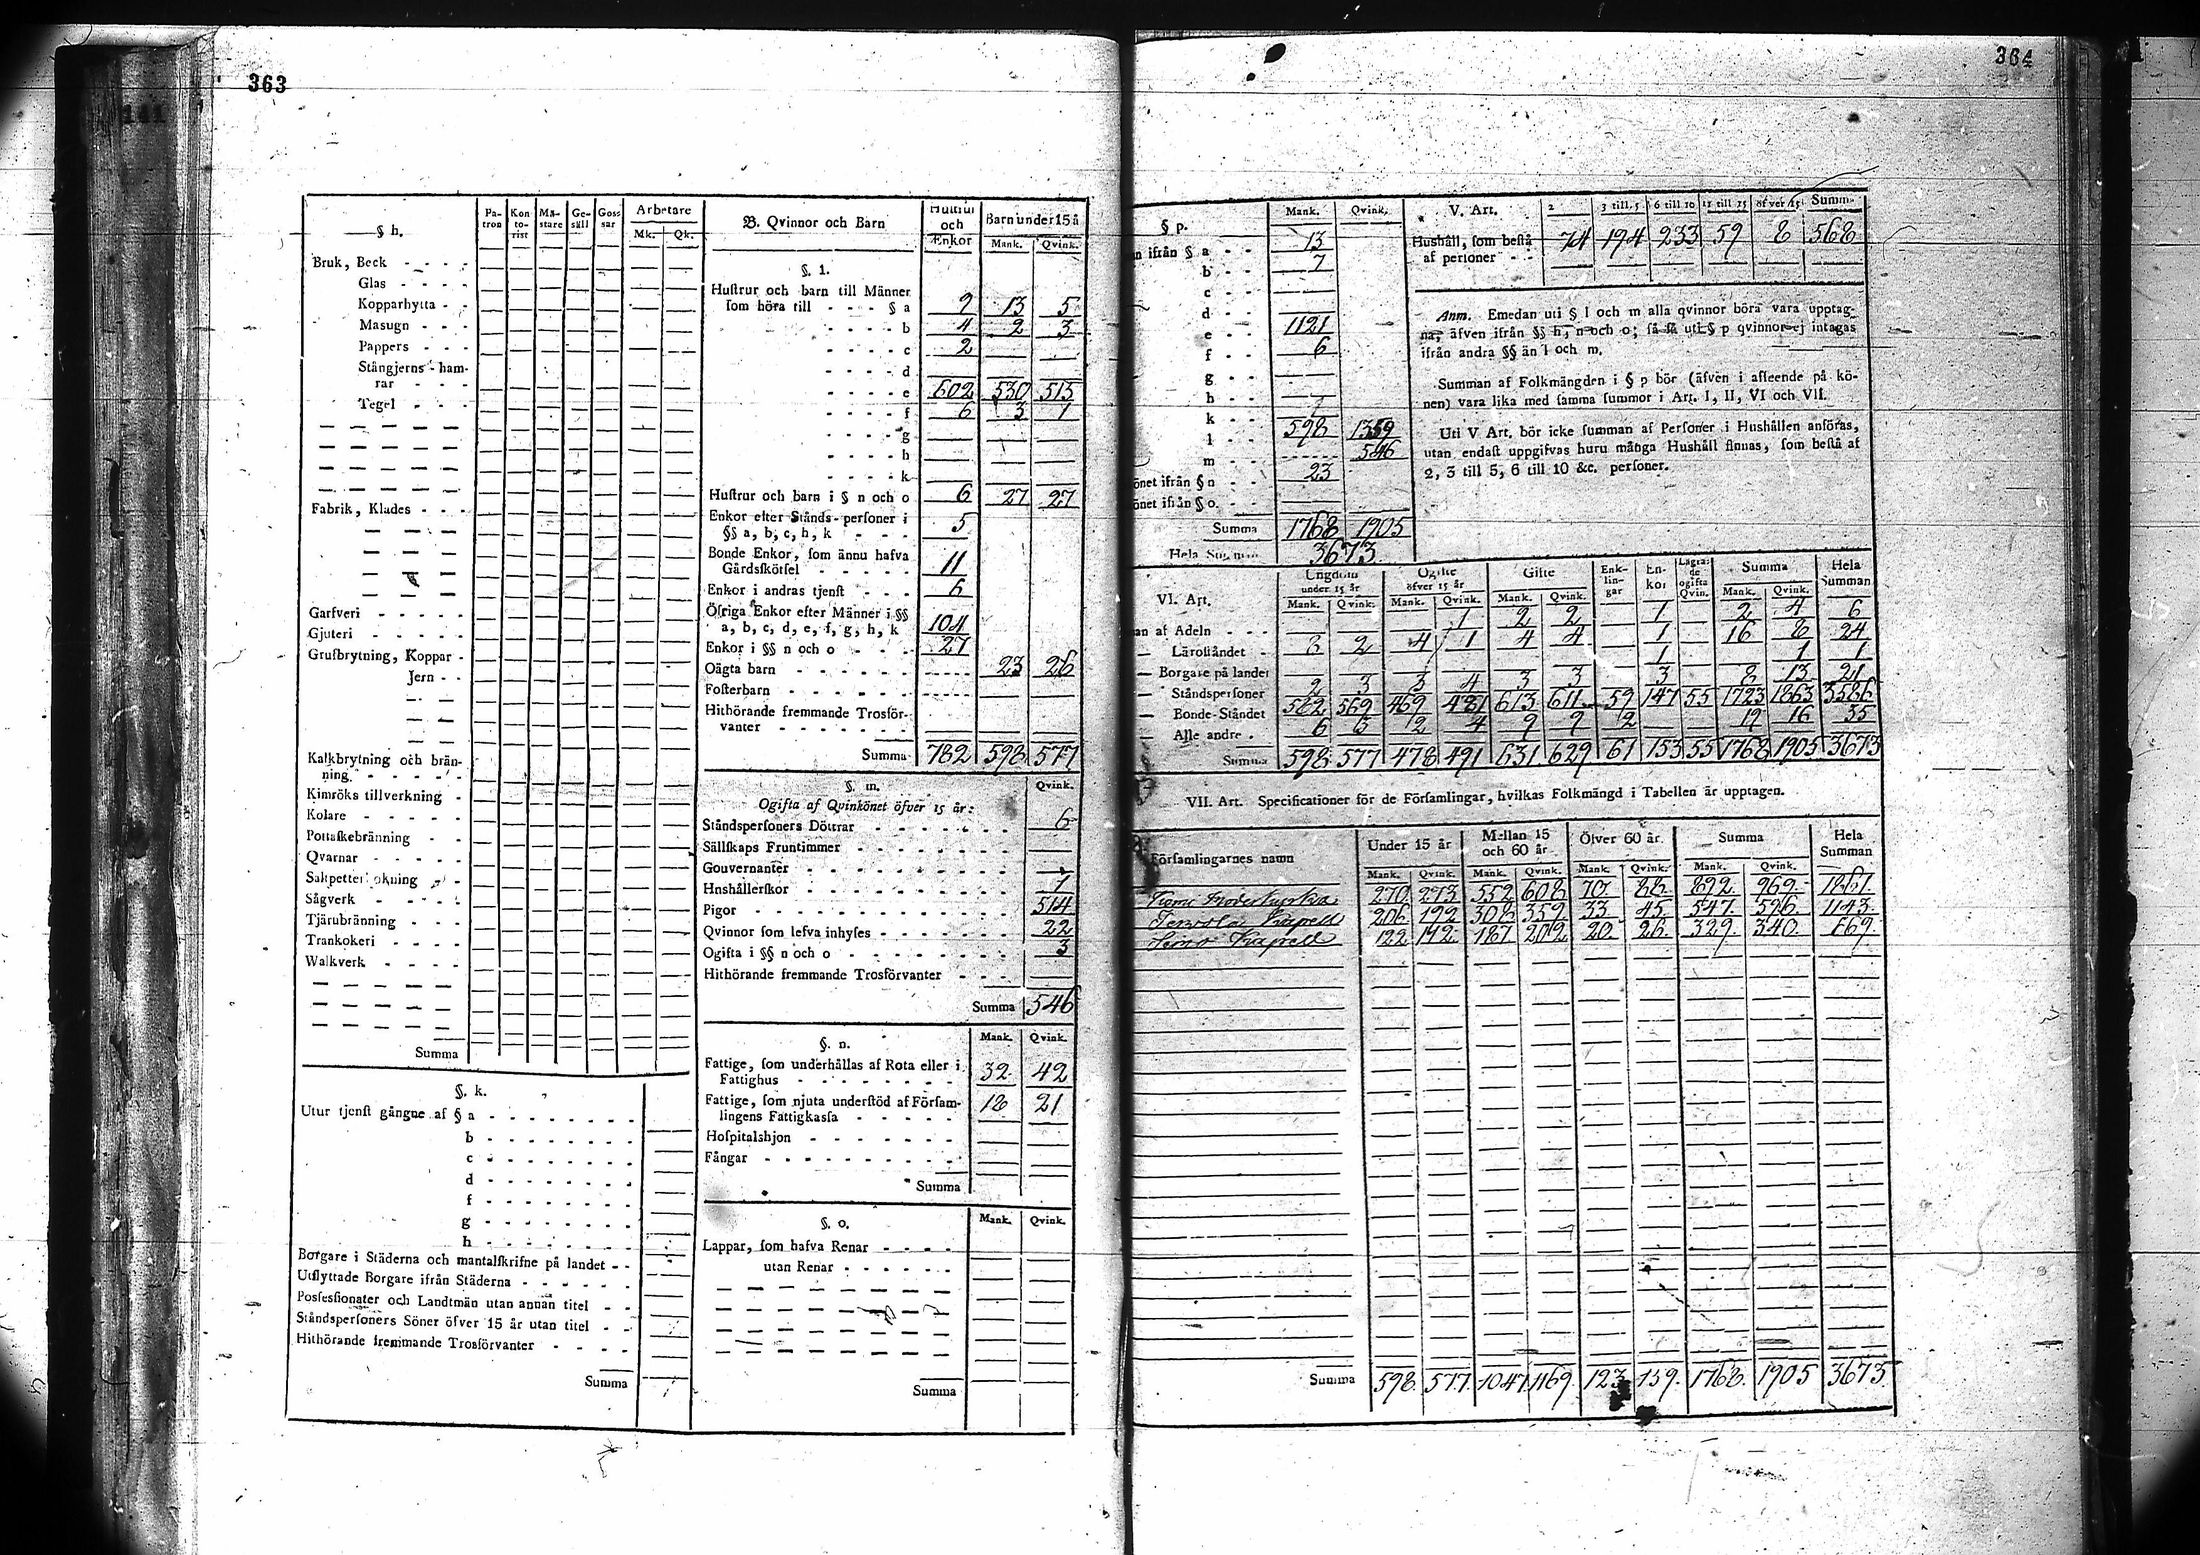 363
§ h.
Pa-tron Kon to-rist Mä-stare Ge-säll Goss sar Arbetare
Mk. Qk.
Bruk, Beck - - - -
Glas - - - -
Kopparhytta - -
Masugn - - -
Pappers - - -
Stångjerns-ham-
rar - - -
Tegel - - -
Fabrik, Klädes - - -
Garfveri - - - -
Gjuteri - - - - -
Grufbrytning, Koppar -
Jern - -
Kalkbrytning och brän-
ning - - - - -
Kimröks tillverkning -
Kolare - - - - -
Pottaskebränning - -
Qvarnar - - - - -
Sågverk - - - -
Tjärubränning - - -
Trankokeri - - - -
Walkverk - - - -
Summa
§. k.
Utur tjenst gångne af § a - - - - - - -
b - - - - - - -
c - - - - - - -
d - - - - - - -
f - - - - - - -
g - - - - - - -
h - - - - - - -
Borgare i Städerna och mantalskrifne på landet - -
Utflyttade Borgare ifrån Städerna - - - - -
Possessionater och Landtmän utan annan titel - -
Ståndspersoners Söner öfver 15 år utan titel - -
Hithörande fremmande Trosförvanter - - - -
Summa
B. Qvinnor och Barn Hustrur och Enkor Barn under 15 å
Mank. Qvink.
§. 1.
Hustrur och barn till Männer
som höra till - - - § a 9 13 5
- - - - b 4 2 3
- - - - c 2
- - - - d
- - - - e 602 530 513
- - - - f 6 3 1
- - - - g
- - - - h
- - - - k
Hustrur och barn i § n och o 6 27 27
Enkor efter Stånds-personer i
§§ a, b, c, h, k - - - 5
Bonde Enkor, som ännu hafva
Gårdsskötsel - - - - - 11
Enkor i andras tjenst - - - 6
Öfriga Enkor efter Männer i §§
a, b, c, d, e, f, g, h, k 104
Enkor i §§ n och o - - - 27
Oägta barn - - - - - - 23 26
Fosterbarn - - - - - -
Hithörande fremmande Trosför-
vanter - - - - - - -
Summa 782 598 577
§. m. Qvink.
Ogifta af Qvinkönet öfver 15 år:
Ståndspersoners Döttrar - - - - - - - 6
Sällskaps Fruntimmer - - - - - - - -
Gouvernanter - - - - - - - - - -
Hushållerskor - - - - - - - - - - 1
Pigor - - - - - - - - - - - 514
Qvinnor som lefva inhyses - - - - - - 22
Ogifta i §§ n och o - - - - - - - - 3
Hithörande fremmande Trosförvanter - - -
Summa 546
§. n. Mank. Qvink.
Fattige, som underhållas af Rota eller i
Fattighus - - - - - - - - 32 42
Fattige, som njuta understöd af Försam-
lingens Fattigkassa - - - - - 18 21
Hospitalshjon - - - - - - -
Fångar - - - - - - - - - -
Summa
§. o. Mank. Qvink.
Lappar, som hafva Renar - - - -
utan Renar - - - - - -
Summa
364
§ p. Mank. Qvink.
ifrån § a - - 13
b - - 7
c - -
d - -
e - - 1121
f - - 6
g - -
h - -
k - -
l - - 598 1359
m - - 546
önet ifrån § n - - 23
önet ifrån § o. - -
Summa 1768 1905
Hela Summan 3673
V. Art. 2 3 till 5 6 till 10 11 till 15 öfver 15 Summa
Hushåll, som bestå
af personer - - 74 194 233 59 8 568
Anm. Emedan uti § l och m alla qvinnor böra vara upptag-
na, äfven ifrån §§ h, n och o; så få uti § p qvinnor ej intagas
ifrån andra §§ än l och m.
Summan af Folkmängden i § p bör (äfven i afseende på kö-
nen) vara lika med samma summor i Art. I, II, VI och VII.
Uti V Art. bör icke summan af Personer i Hushållen anföras,
utan endast uppgifvas huru många Hushåll finnas, som bestå af
2, 3 till 5, 6 till 10 &c. personer.
VI. Art. Ungdom under 15 år Ogifte öfver 15 år Gifte Enk-lin-gar En-kor Lägra-de ogifta Qvin. Summa Hela Summan
Mank. Qvink. Mank. Qvink. Mank. Qvink. Mank. Qvink.
af Adeln - - - 1 2 2 1 2 4 6
— Läroståndet - 8 2 4 1 4 4 1 16 8 24
— Borgare på landet 1 1 1
— Ståndspersoner 2 3 3 4 3 3 3 8 13 21
— Bonde-Ståndet 582 569 469 481 613 611 59 147 55 1723 1863 3586
— Alle andre - 6 3 2 4 9 9 2 19 16 35
Summa 598 577 478 491 631 629 61 153 55 1768 1905 3673
VII. Art. Specificationer för de Församlingar, hvilkas Folkmängd i Tabellen är upptagen.
Församlingarnes namn Under 15 år Mellan 15 och 60 år Öfver 60 år. Summa Hela Summan
Mank. Qvink. Mank. Qvink. Mank. Qvink. Mank. Qvink.
Kemi Moderkyrka 270 273 552 608 70 88 892 969 1861
Tervola Kapell 206 192 308 359 33 45 547 596 1143
Simo Kapell 122 112 187 202 20 26 329 340 669
Summa 598 577 1047 1169 123 159 1768 1905 3673